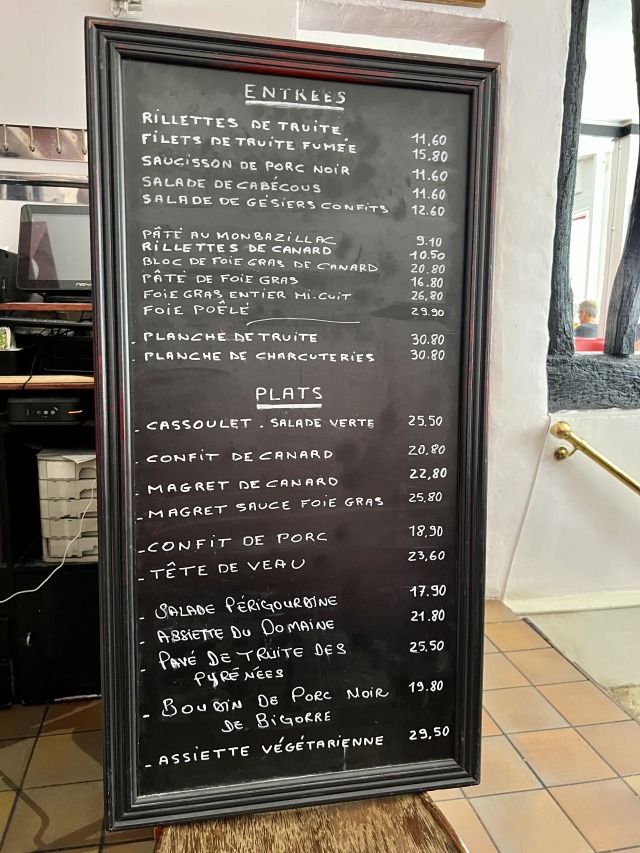 ENTREES
RILLETTES DE TRUITE 11,60
FILETS DE TRUITE FUMÉE 15.80
SAUCISSON DE PORC NOIR 11.60
SALADE DE CABÉCOUS 11.60
SALADE DE GÉSIERS CONFITS 12.60
PÂTÉ AU MONBAZILLAC 9.10
RILLETTES DE CANARD 10.50
BLOC DE FOIE GRAS DE CANARD 20.80
PÂTÉ DE FOIE GRAS 16.80
FOIE GRAS ENTIER MI.CUIT 26,80
FOIE POÊLÉ 29.90
- PLANCHE DE TRUITE 30.80
- PLANCHE DE CHARCUTERIES 30.80
PLATS
- CASSOULET . SALADE VERTE 25,50
- CONFIT DE CANARD 20,80
- MAGRET DE CANARD 22,80
- MAGRET SAUCE FOIE GRAS 25,80
- CONFIT DE PORC 18,90
- TÊTE DE VEAU 23,60
- SALADE PÉRIGOURDINE 17.90
- ASSIETTE DU DOMAINE 21.80
- PAVÉ DE TRUITE DES 25,50
PYRÉNÉES
- BOUDIN DE PORC NOIR 19.80
DE BIGORRE
- ASSIETTE VÉGÉTARIENNE 29,50